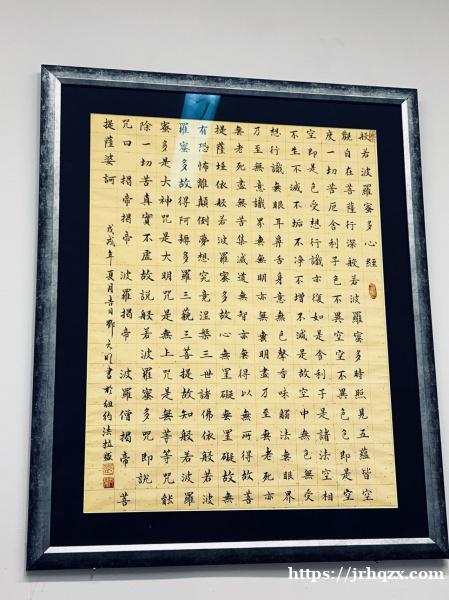 般若波羅蜜多心經
觀自在菩薩行深般若波羅蜜多時照見五蘊皆空
度一切苦厄舍利子色不異空空不異色色即是空
空即是色受想行識亦復如是舍利子是諸法空相
不生不滅不垢不淨不增不減是故空中無色無受
想行識無眼耳鼻舌身意無色聲香味觸法無眼界
乃至無意識界無無明亦無無明盡乃至無老死亦
無老死盡無苦集滅道無智亦無得以無所得故菩
提薩埵依般若波羅蜜多故心無罣礙無罣礙故無
有恐怖離顛倒夢想究竟涅槃三世諸佛依般若波
羅蜜多故得阿耨多羅三藐三菩提故知般若波羅
蜜多是大神咒是大明咒是無上咒是無等等咒能
除一切苦真實不虛故說般若波羅蜜多咒即說
咒曰 揭帝揭帝 波羅揭帝 波羅僧揭帝 菩
提薩婆訶
戊戌年夏月吉日鄧 書於紐約法拉盛
https://jrhqzx.com